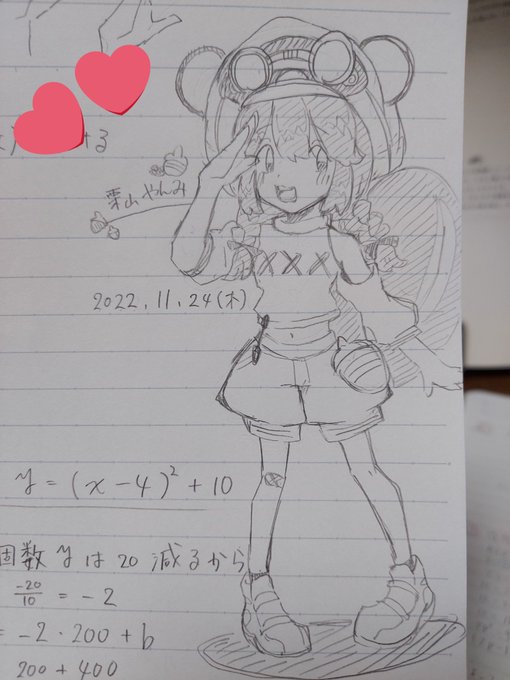 +3
栗山やんみ
2022.11.24(木)
y = (x-4)² + 10
個数yは20減るから
-20/10 = -2
= -2・200+b
200+400